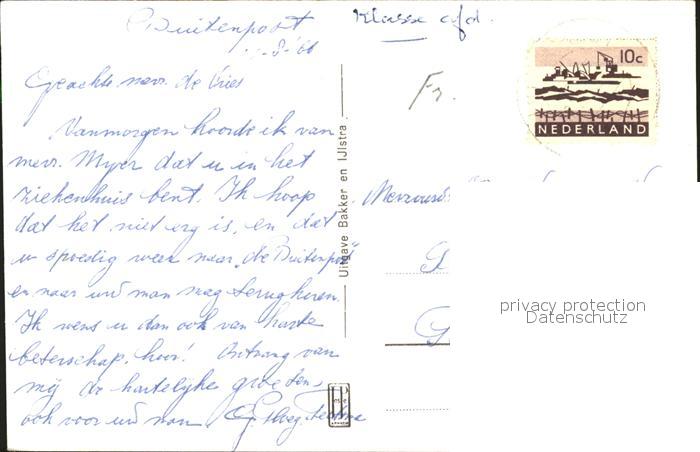 Buitenpost
Klasse afd.
-8-'66
10c
NEDERLAND
Geachte mevr. de Vries
Fr.
Vanmorgen hoorde ik van
mevr. Myer dat u in het
ziekenhuis bent. Ik hoop
dat het niet erg is, en dat
u spoedig weer naar "de Buitenpost"
en naar uw man mag terugkeren.
Ik wens u dan ook van harte
beterschap, hoor! Ontvang van
mij de hartelijke groeten,
ook voor uw man
Mevrouw
Uitgave Bakker en IJlstra
privacy protection
Datenschutz